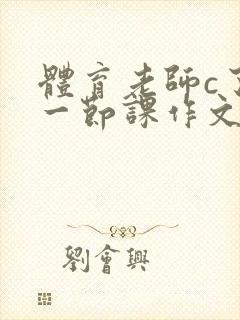 體育老師c
一節課作文
劉會興